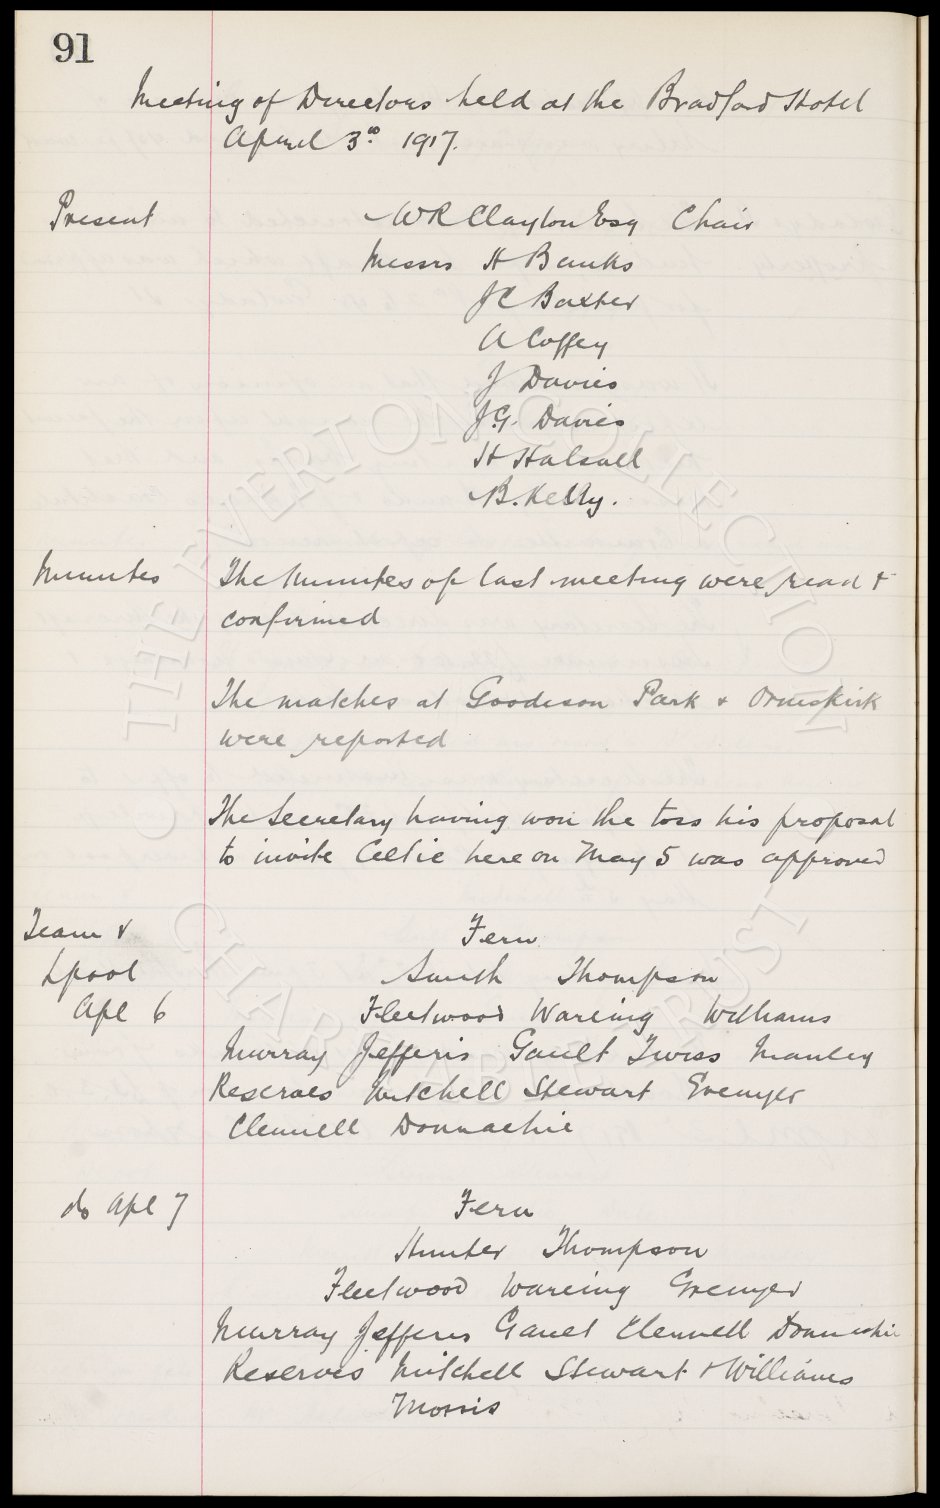 91
Meeting of Directors held at the Bradford Hotel
April 3rd 1917.
Present W R Clayton Esq Chair
Messrs H Banks
J C Baxter
A Coffey
J Davies
J. G. Davies
H Halsall
B. Kelly.
Minutes The Minutes of last meeting were read &
confirmed
The matches at Goodison Park & Ormskirk
were reported
The Secretary having won the toss his proposal
to invite Celtic here on May 5 was approved
Team v Fern
Lpool Smith Thompson
Apl 6 Fleetwood Wareing Williams
Murray Jefferis Gault Twiss Manley
Reserves Mitchell Stewart Grenyer
Clennell Donnachie
do Apl 7 Fern
Hunter Thompson
Fleetwood Wareing Grenyer
Murray Jefferis Gault Clennell Donnachie
Reserves Mitchell Stewart & Williams
Morris
THE EVERTON COLLECTION
CHARITABLE TRUST